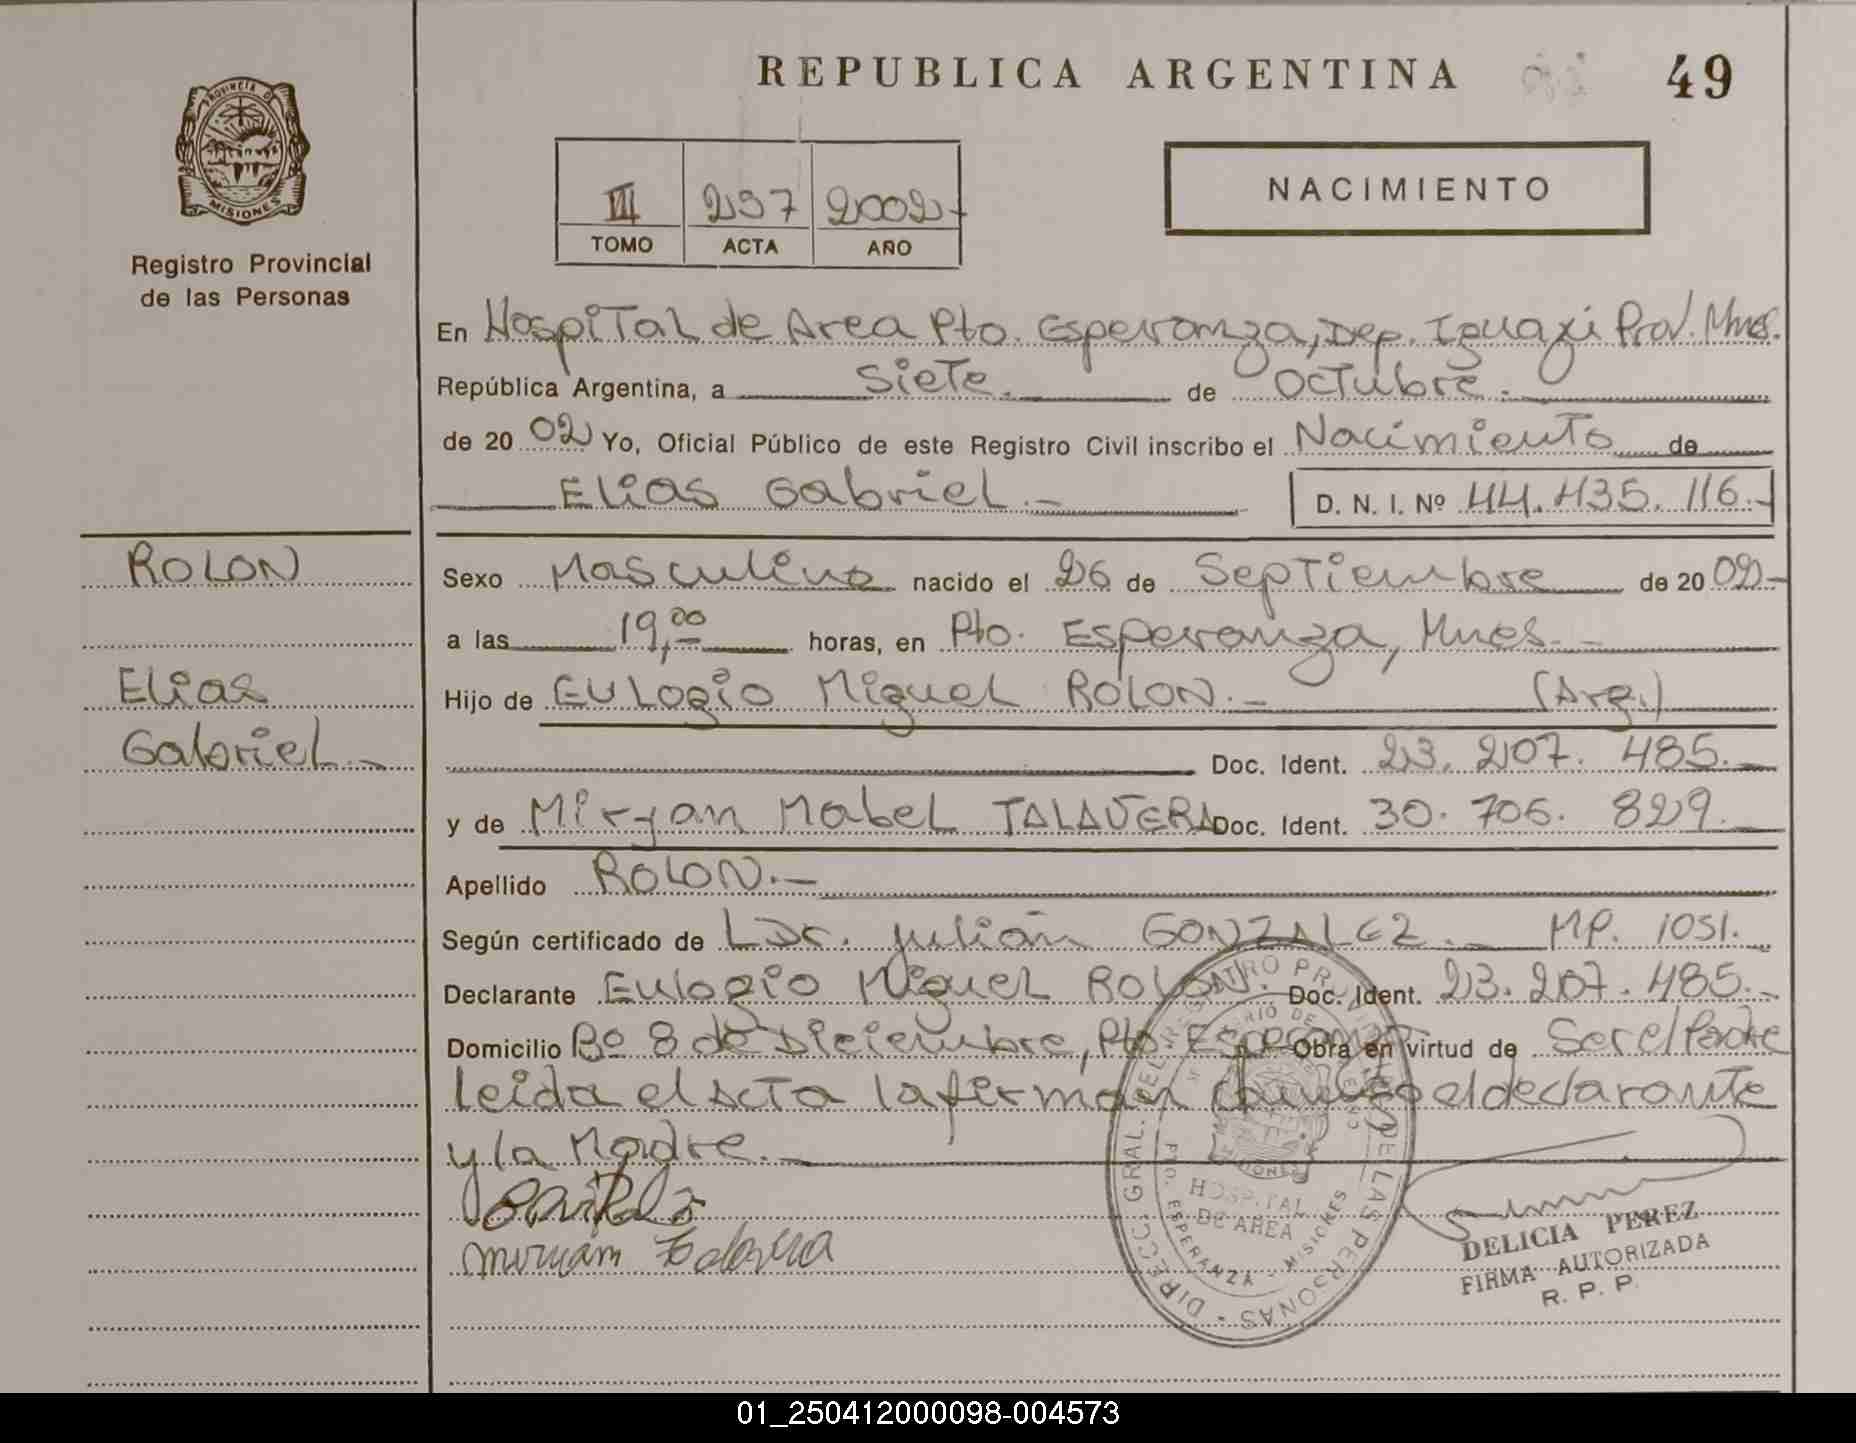 REPUBLICA ARGENTINA
49
PROVINCIA D
MISIONES
Registro Provincial
de las Personas
NACIMIENTO
III 237 2002-
TOMO ACTA AÑO
En Hospital de Area Pto. Esperanza, Dep. Iguazú Prov. Mnes.
República Argentina, a Siete. de Octubre.
de 20 02 Yo, Oficial Público de este Registro Civil inscribo el Nacimiento de
Elias Gabriel.- D. N. I. Nº 44.435.116.-
ROLON
Elias
Gabriel.-
Sexo Masculino nacido el 26 de Septiembre de 20 02-
a las 19,00 horas, en Pto. Esperanza, Mnes.-
Hijo de Eulogio Miguel ROLON.- (Arg.)
Doc. Ident. 23.207.485.-
y de Miryan Mabel TALAVERA Doc. Ident. 30.706.829.-
Apellido ROLON.-
Según certificado de Dr. Julián GONZALEZ.- MP. 1051.
Declarante Eulogio Miguel ROLON. Doc. Ident. 23.207.485.-
Domicilio Bº 8 de Diciembre, Pto. Esperanza Obra en virtud de Ser el Padre
leida el acta la firman conmigo el declarante
y la Madre.-
miriam talavera
DIRECC. GRAL. DEL REGISTRO PROV. DE LAS PERSONAS
HOSPITAL
DE AREA
PTO. ESPERANZA - MISIONES
DELICIA PEREZ
FIRMA AUTORIZADA
R. P. P.
01_250412000098-004573